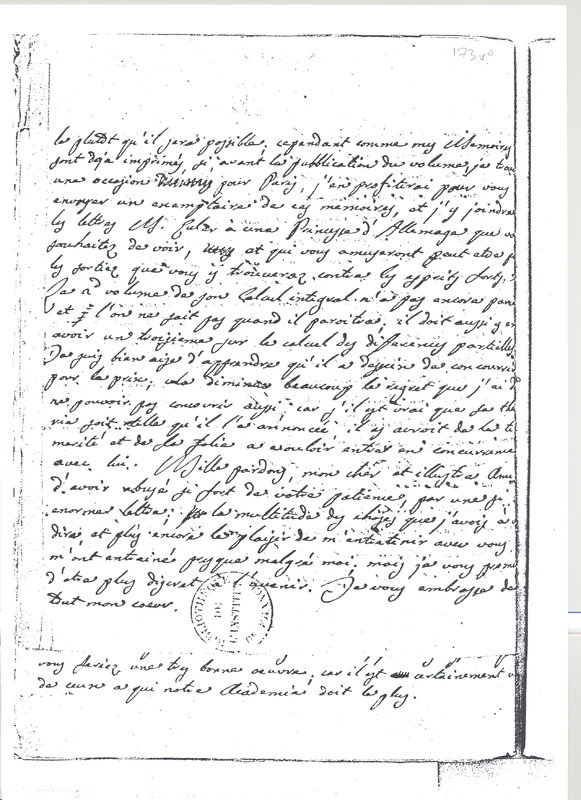 173 vo
le plutôt qu'il sera possible. cependant comme mes Memoires
sont deja imprimés, si avant la publication du volume je
une occasion pour Paris, j'en profiterai pour vous
envoyer un exemplaire de ces memoires, et j'y joindrai
les lettres M. Euler à une Princesse d'Allemagne que
souhaitez de voir, et qui vous amuseront peut etre
les sorties que vous y trouverez contre les esprits forts.
Le 2d volume de son Calcul integral n'a pas encore
et l'on ne sait pas quand il paroitra; il doit aussi y
avoir un troisieme sur le calcul des differences partielles
Je suis bien aise d'apprendre qu'il a dessein de concourir
pour le prix; cela diminue beaucoup le regret que j'ai
ne pouvoir pas concourir aussi car s'il est vrai que sa
rie soit telle qu'il l'a annoncée il y auroit de la
merité et de la folie a vouloir entrer en concurrence
avec lui. Mille pardons, mon cher et illustre Ami
d'avoir abusé si fort de votre patience, par une si
enorme lettre; la multitude des choses que j'avois à
dire, et plus encore le plaisir de m'entretenir avec vous
m'ont entrainé presque malgré moi; mais je vous
d'etre plus discret à l'avenir. Je vous embrasse de
tout mon coeur.
BIBLIOTHEQUE DE L'INSTITUT
vous feriez une tres bonne oeuvre, car il est certainement
de ceux a qui notre Academie doit le plus.